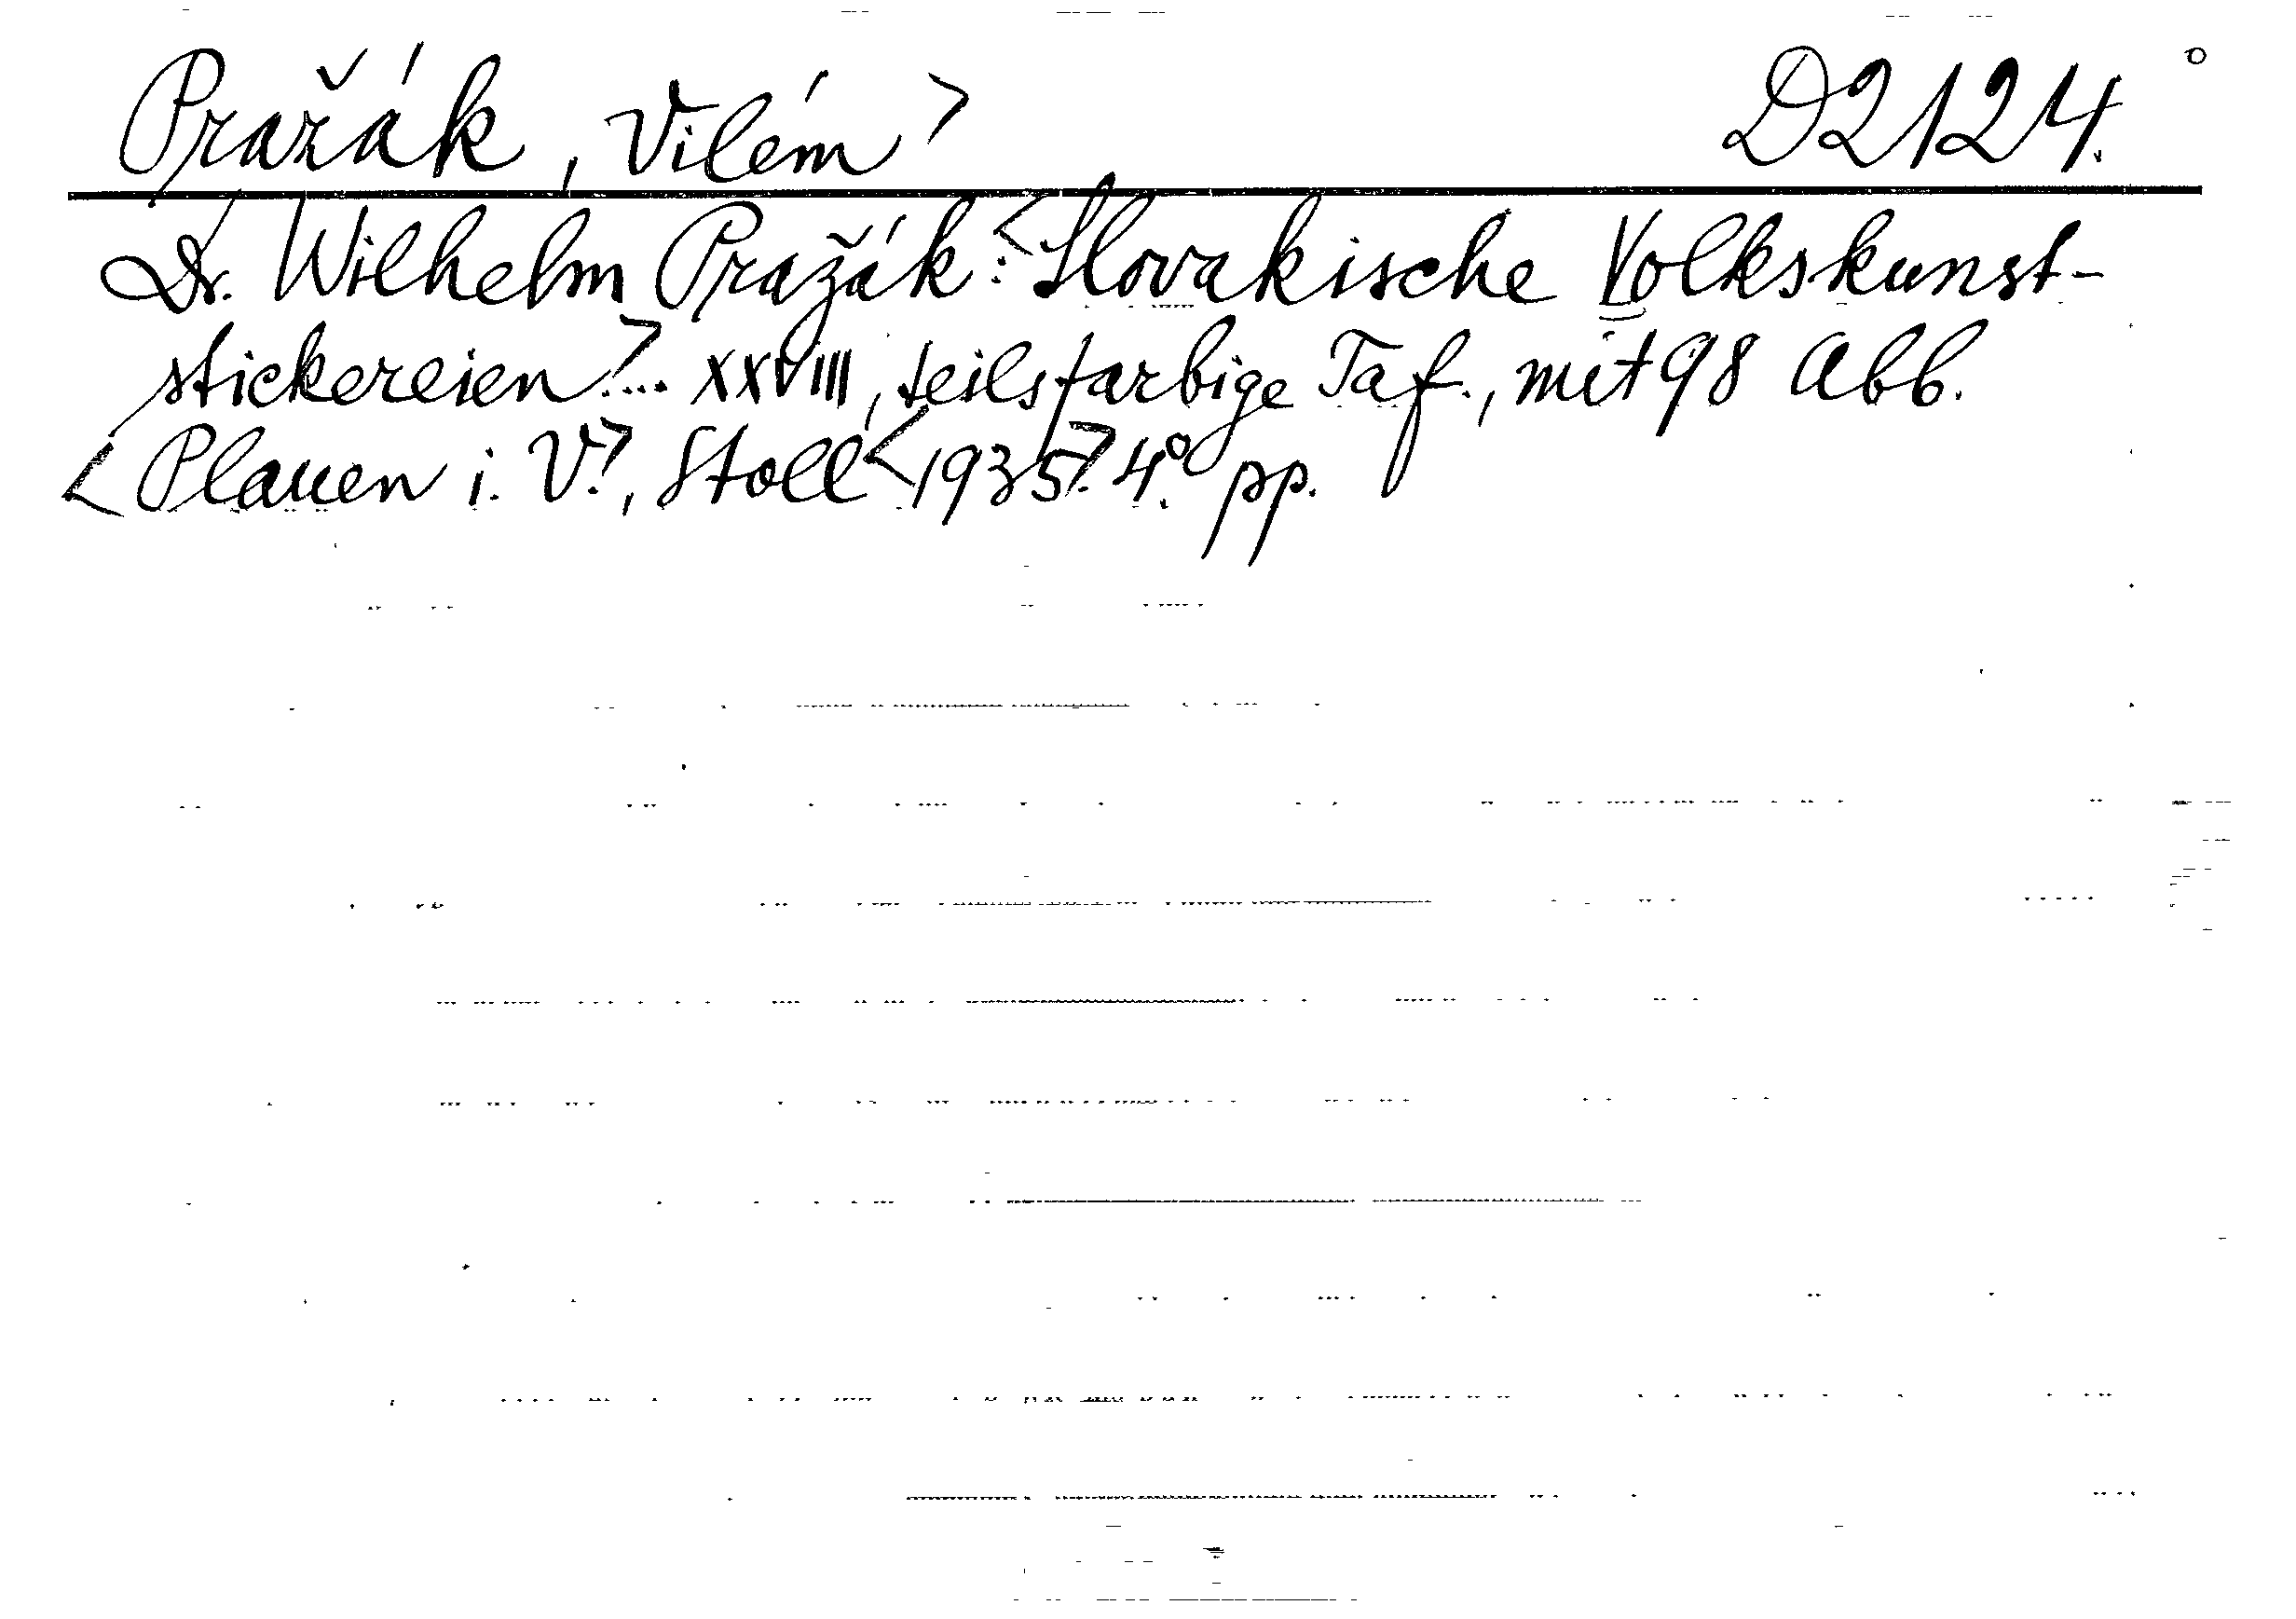 Pražák, Vilém> D2124.°
Dr. Wilhelm Pražák: <Slovakische Volkskunst-
stickereien>... XXVIII, teilsfarbige Taf., mit 98 Abb.
<Plauen i. V.>, Stoll <1935>. 4.° pp.